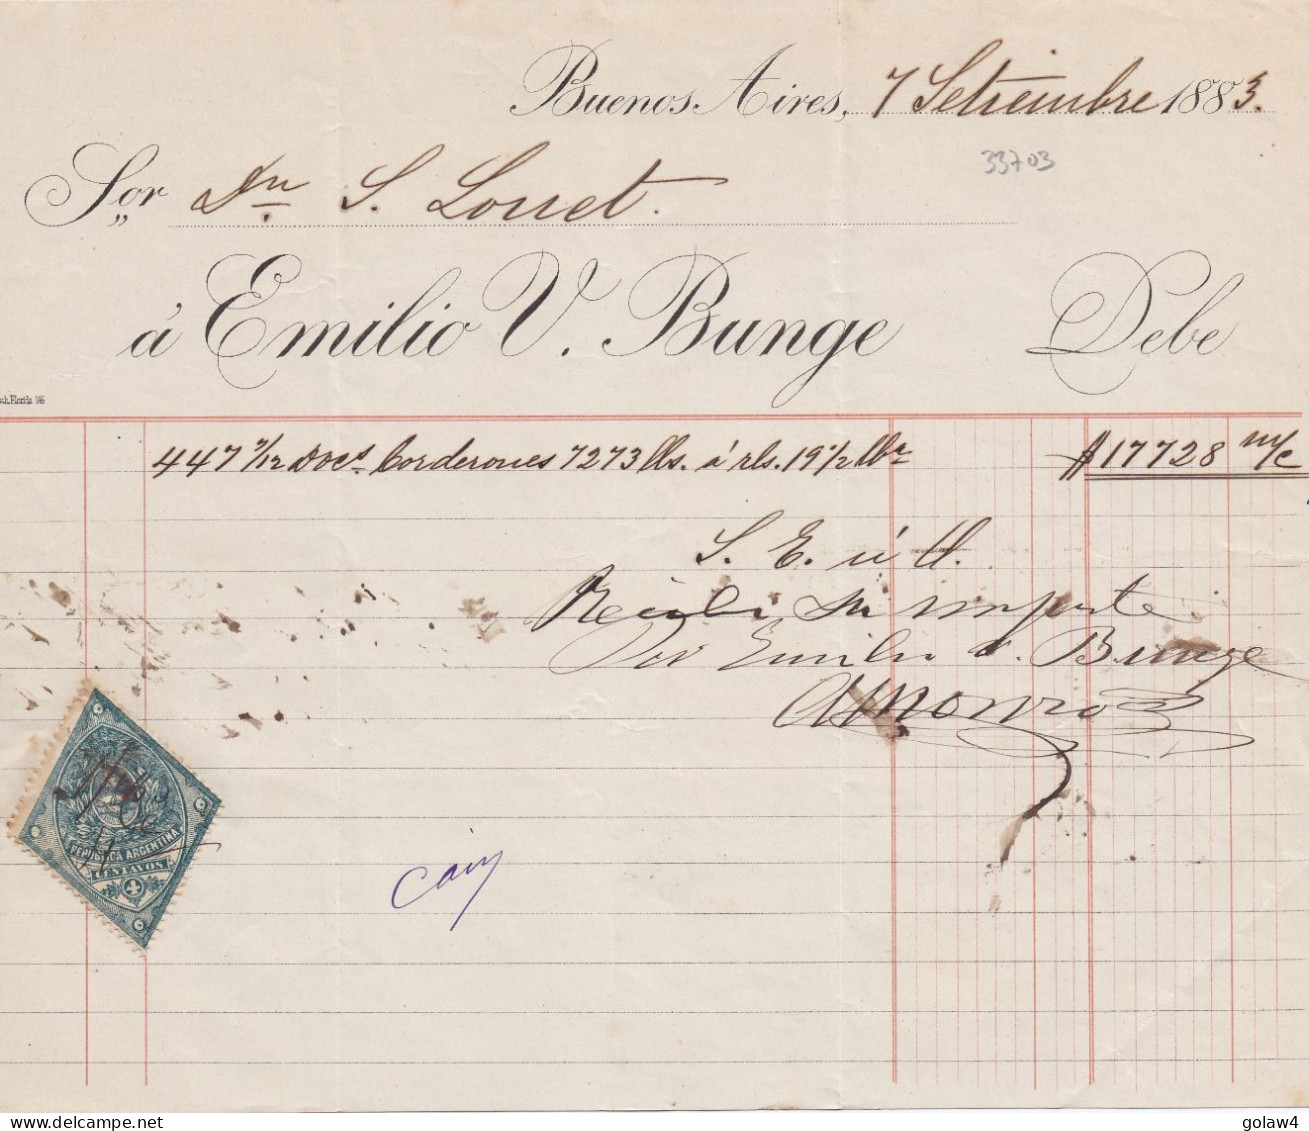 Buenos Aires, 7 Setiembre 1883.
33703
Sor Dn S. Louet.
á Emilio V. Bunge Debe
Florida 146
447 7/12 Docs Corderones 7273 lbs. á rls. 19 1/2 lbr $ 17728 m/c
S. E. ú O.
Recibi su importe
Por Emilio V. Bunge
AMonroz
REPUBLICA ARGENTINA
CENTAVOS
4
golaw4
delcampe.net